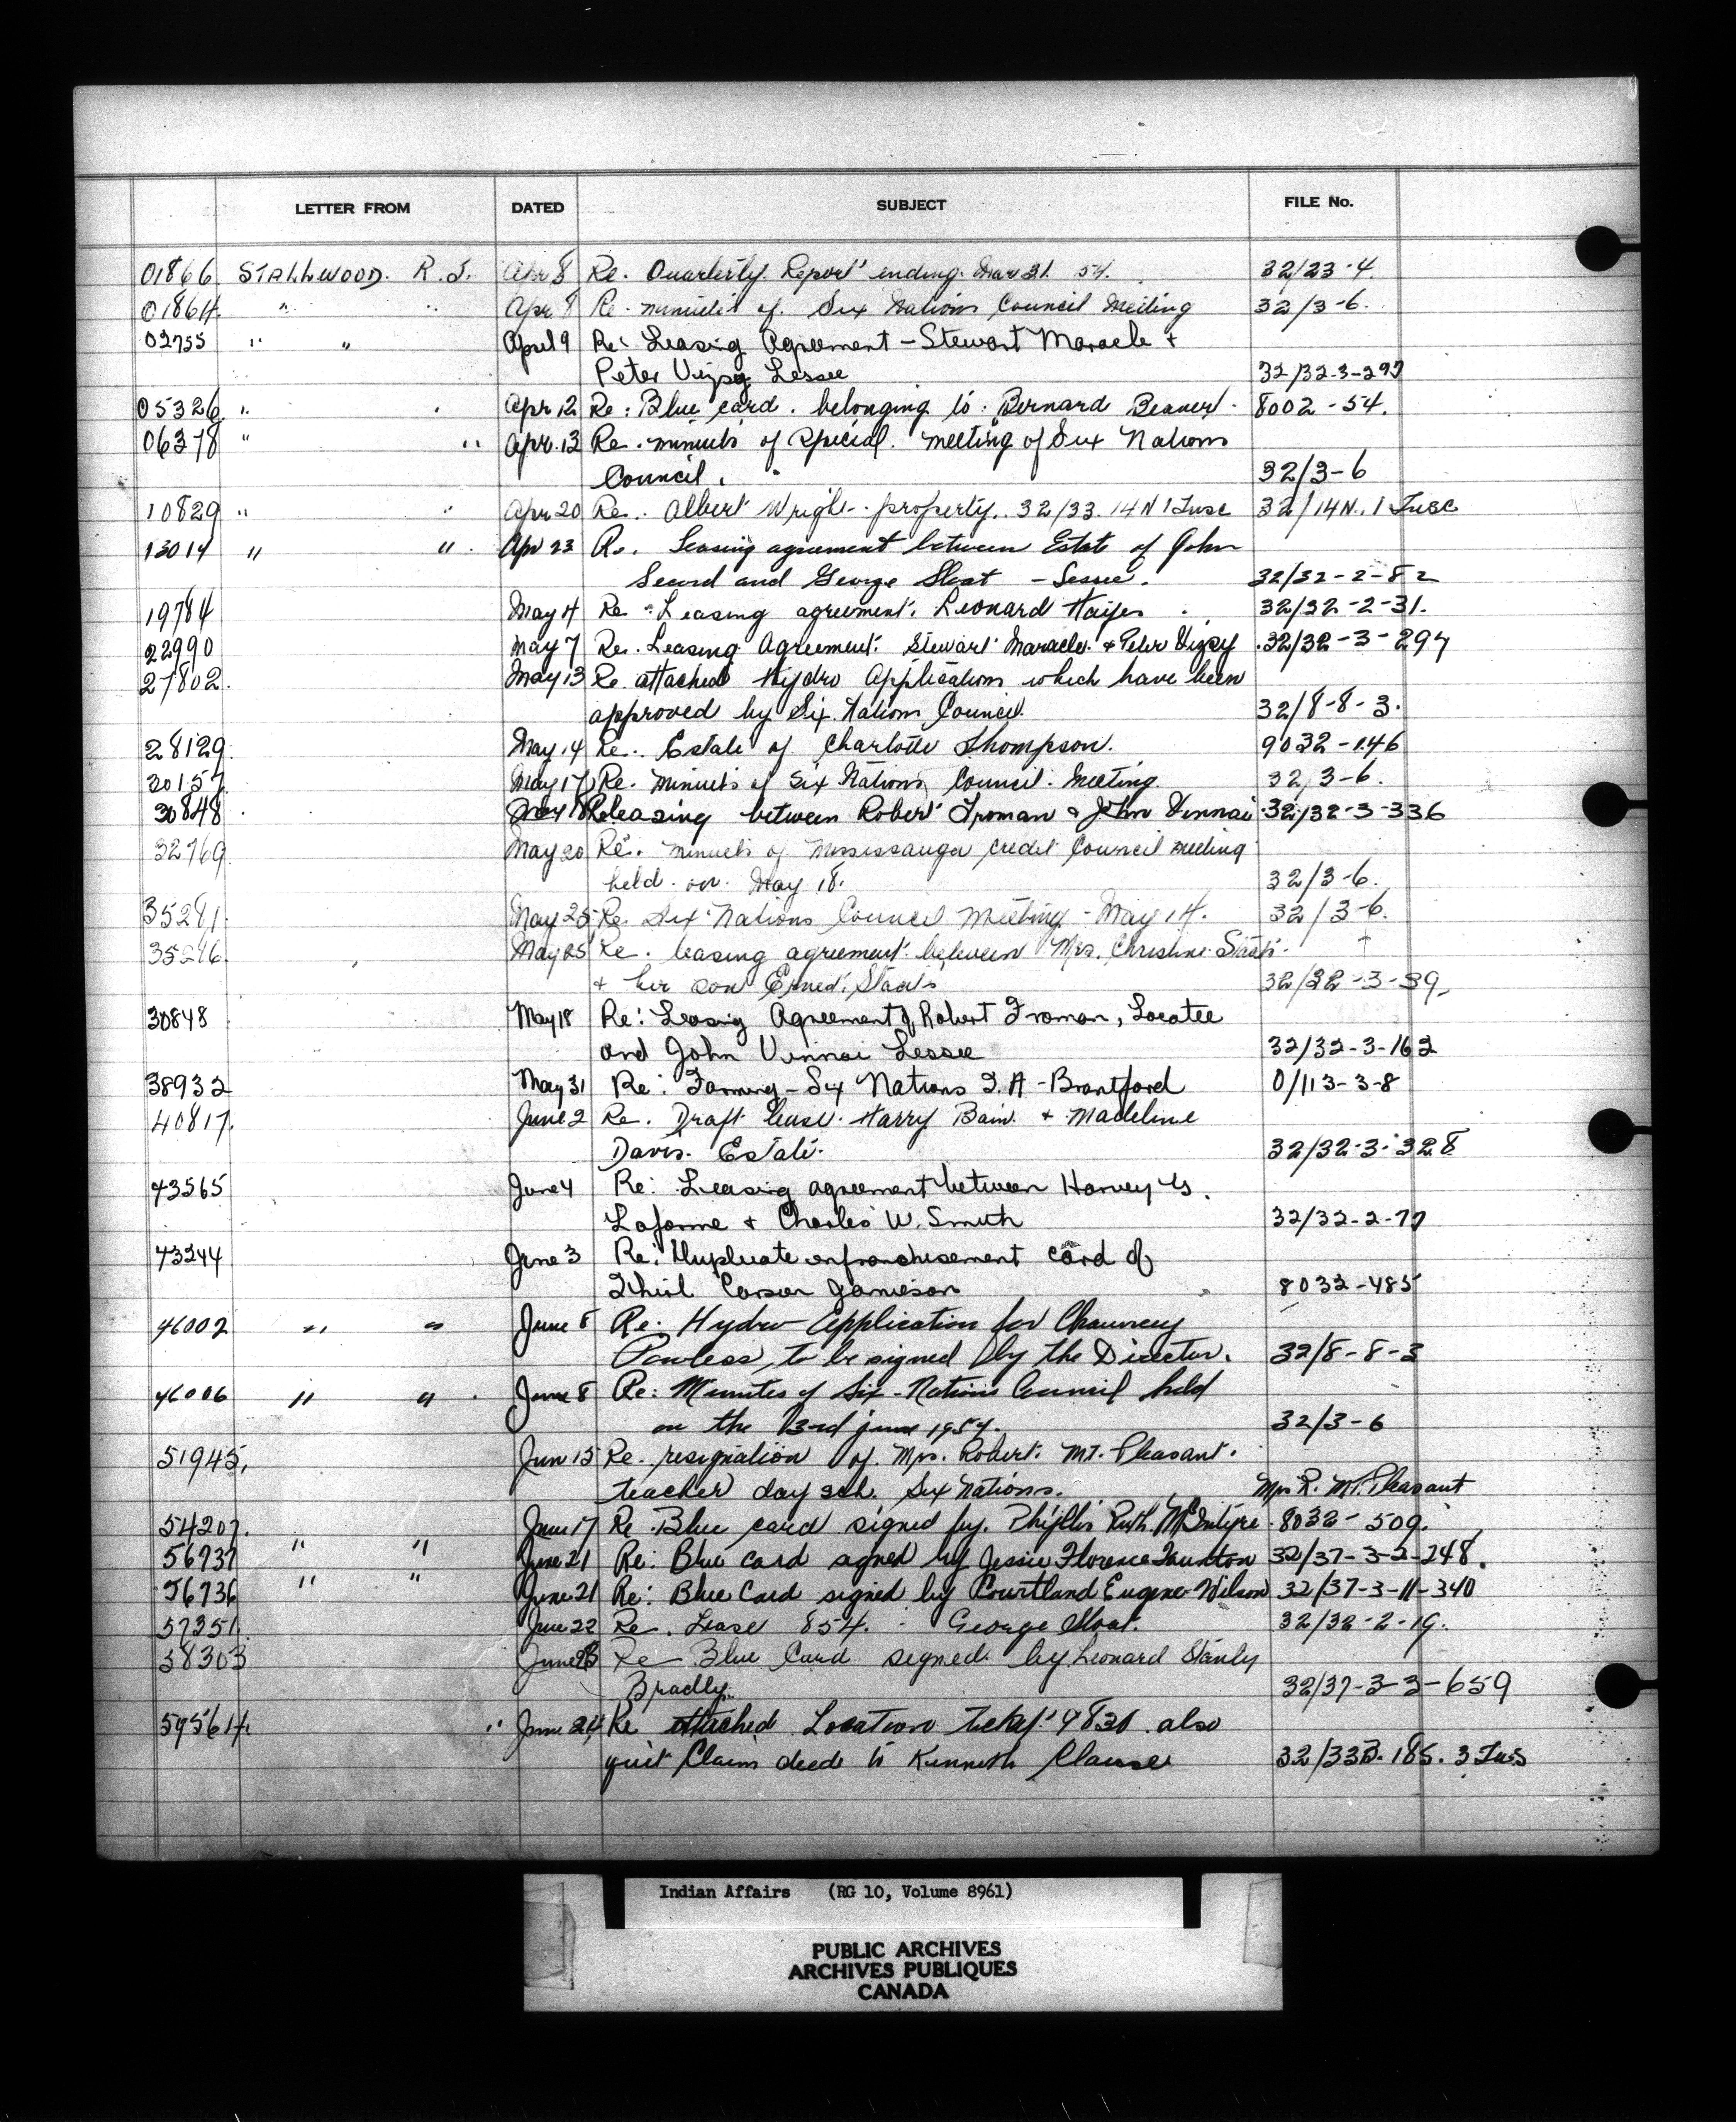 LETTER FROM DATED SUBJECT FILE No.
01866 STALLWOOD. R.J. Apr 8 Re. Quarterly Report ending Mar 31. 54. 32/23-4.
01864. " " Apr 8 Re. minutes of Six Nations Council Meeting 32/3-6.
02755 " " April 9 Re: Leasing Agreement - Stewart Maracle +
Peter Vizsy Lessee 32/32-3-297
05326. " " Apr 12 Re: Blue card. belonging to. Bernard Beaver. 8002-54.
06378 " " Apr. 13 Re. minutes of special. meeting of Six Nations
Council. 32/3-6
10829 " " Apr 20 Re.. Albert Wright. property. 32/33. 14 N 1 Tusc 32/14N. 1 Tusc
13014 " " Apr 23 Re. Leasing agreement between Estate of John
Secord and George Sloat - Lessee. 32/32-2-82
19784 May 4 Re. Leasing agreement. Leonard 32/32-2-31.
22990 May 7 Re. Leasing Agreement. Stewart Maracle. + Peter Vizsy 32/32-3-297
27802. May 13 Re. attached Hydro Application which have been
approved by Six Nations Council. 32/8-8-3.
28129. May 14 Re.. Estate of Charlotte Thompson. 9032-146
May 17 Re. minutes of Six Nations Council. Meeting. 32/3-6.
30848. May 18 Re leasing between Robert Froman & John Vinnai 32/32-3-336
32769 May 20 Re. minutes of Mississauga Credit Council meeting
held on May 18. 32/3-6.
35281. May 25 Re. Six Nations Council Meeting - May 14. 32/3-6.
May 25 Re. leasing agreement between Mrs. Christine Staats.
+ her son Ernest. Staats 32/32-3-39.
30848 May 18 Re: Leasing Agreement of Robert Froman, Locatee
and John Vinnai Lessee 32/32-3-162
38932 May 31 Re: Farming - Six Nations I.A - Brantford 0/113-3-8
40817. June 2 Re. Draft lease. Harry Bain. + Madeline
Davis. Estate. 32/32-3-328
43565 June 4 Re: Leasing agreement between Harvey G.
Laforme + Charles W. Smith 32/32-2-77
43244 June 3 Re: Duplicate enfranchisement card of
Carson Jamieson 8032-485
46002 " " June 8 Re: Hydro Application for Chauncey
Powless, to be signed by the Director. 32/8-8-3
46006 " " June 8 Re: Minutes of Six-Nations Council held
on the 3rd june 1954. 32/3-6
51945. Jun 15 Re. resignation of. Mrs. Robert. Mt. Pleasant.
teacher day sch. Six Nations. Mrs R. Mt. Pleasant
54207. June 17 Re. Blue card signed by. Phyllis Ruth McIntyre. 8032-509.
56737 " " June 21 Re: Blue Card signed by Jessie Florence Taunton 32/37-3-2-248.
56736 " " June 21 Re: Blue Card signed by Courtland Eugene Wilson 32/37-3-11-340
57351. June 22 Re. Lease 854. George Sloat. 32/32-2-19.
58303 June 23 Re Blue Card signed by Leonard Stanly
Bradly. 32/37-3-3-659
59564. " June 24, Re attached Location ticket 4830 also
quit Claim deed to Kenneth Clause 32/33 185. 3 Tus
Indian Affairs (RG 10, Volume 8961)
PUBLIC ARCHIVES
ARCHIVES PUBLIQUES
CANADA